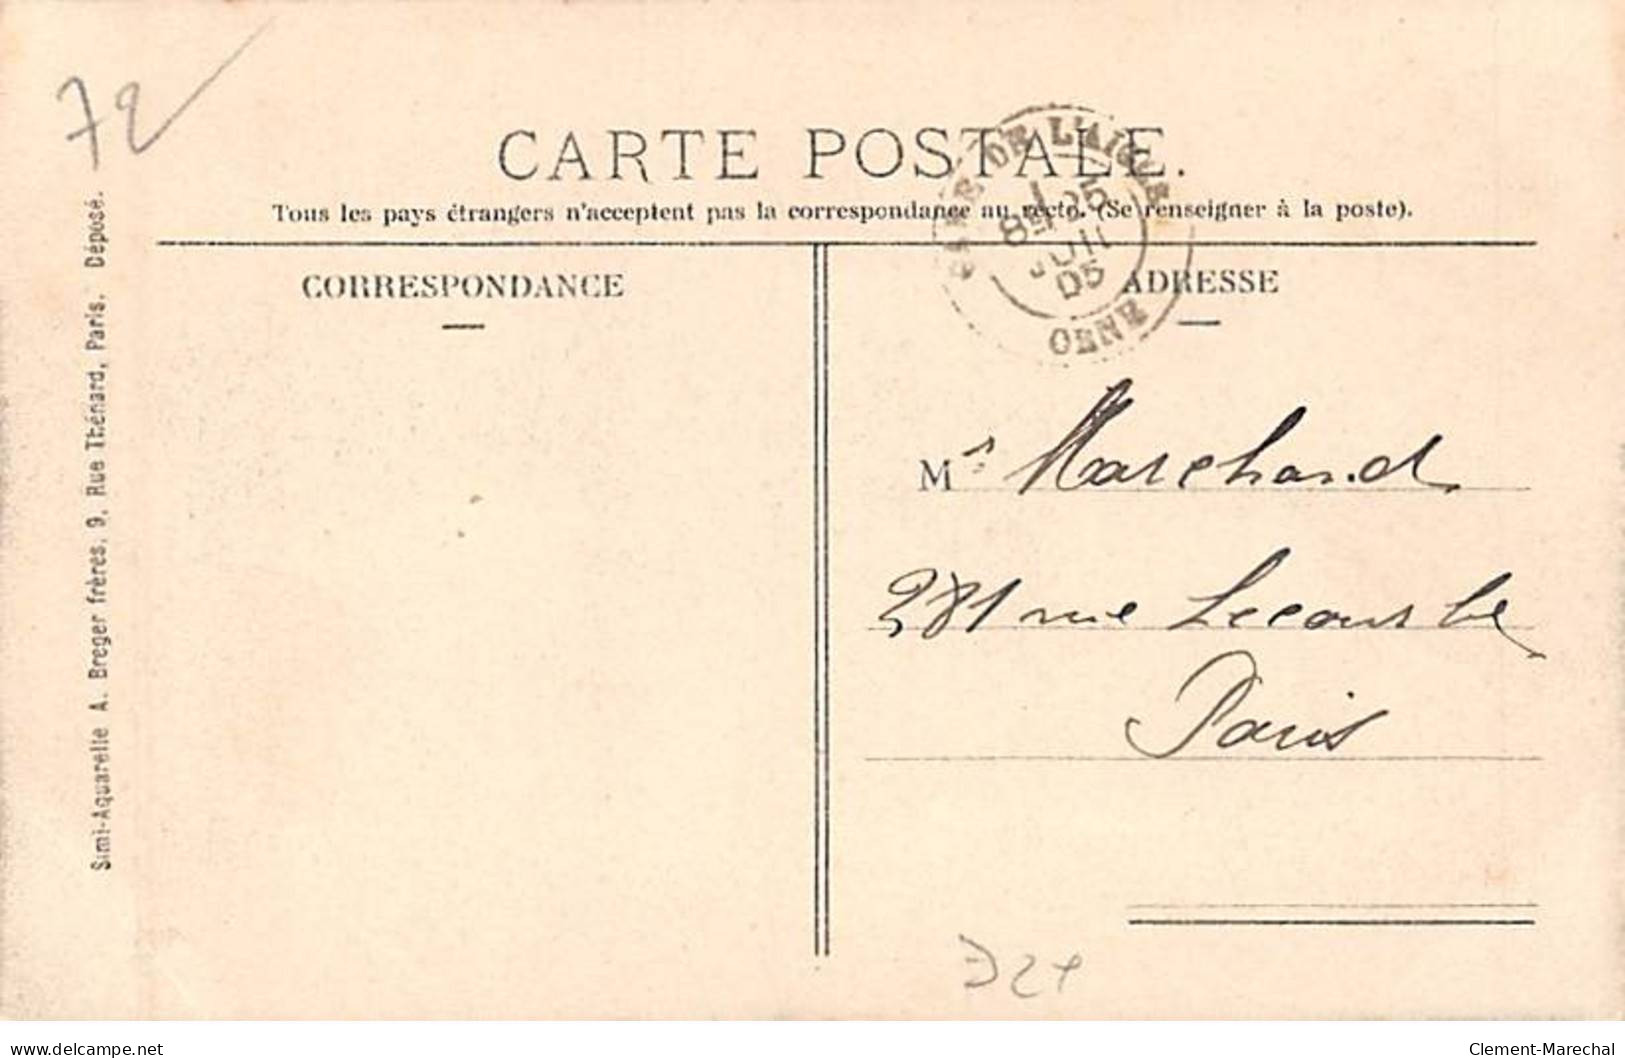 72
CARTE POSTALE.
Tous les pays étrangers n'acceptent pas la correspondance au recto. (Se renseigner à la poste).
CORRESPONDANCE
ADRESSE
GARE DE L'AIGLE
8E 25
JUIL
05
ORNE
Mr Marchand
281 rue Lecourbe
Paris
Simi-Aquarelle A. Breger frères, 9, Rue Thénard, Paris. Déposé.
delcampe.net
Clement-Marechal